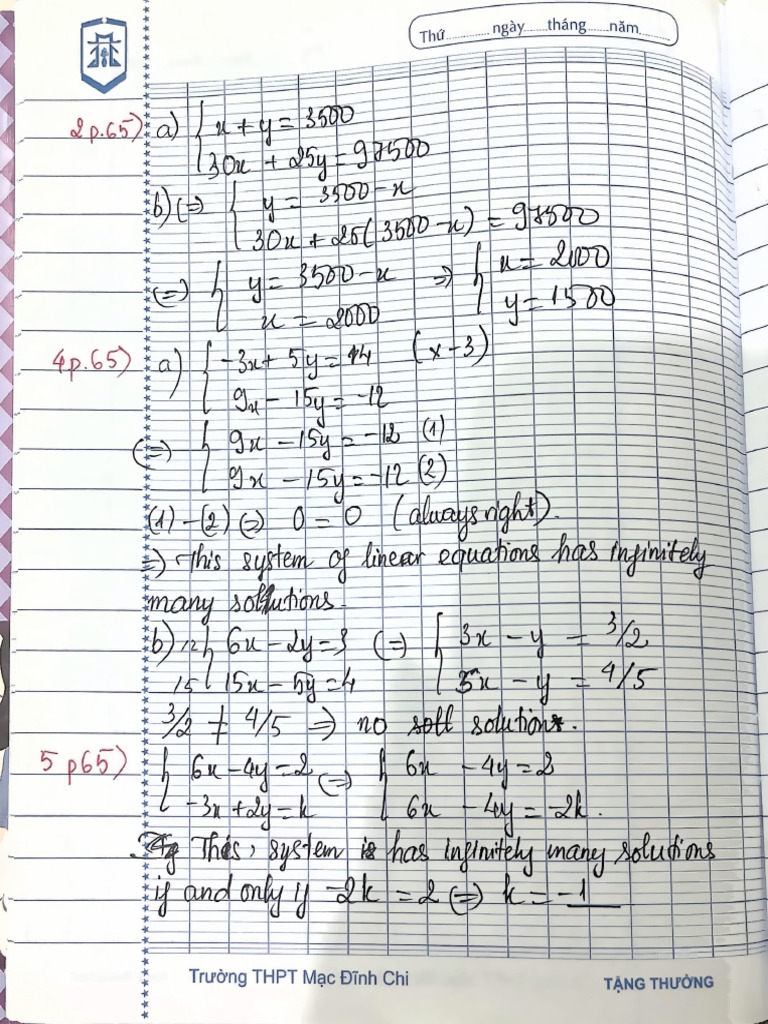 Thứ.............. ngày......tháng......năm.........
2p.65) a) { x + y = 3500
30x + 25y = 97500
b) (=) { y = 3500 - x
30x + 25(3500 - x) = 97500
(=) { y = 3500 - x => { x = 2000
x = 2000 y = 1500
4p.65) a) { -3x + 5y = 4 (x-3)
9x - 15y = -12
(=) { 9x - 15y = -12 (1)
9x - 15y = -12 (2)
(1) - (2) (=) 0 = 0 (always right).
=) This system of linear equations has infinitely
many solutions.
b) 12 { 6x - 2y = 3 (=) { 3x - y = 3/2
15 15x - 5y = 4 3x - y = 4/5
3/2 ≠ 4/5 => no solution.
5 p65) { 6x - 4y = 2 (=) { 6x - 4y = 2
-3x + 2y = k 6x - 4y = -2k.
This, system is has infinitely many solutions
if and only if -2k = 2 (=) k = -1
Trường THPT Mạc Đĩnh Chi TẶNG THƯỞNG